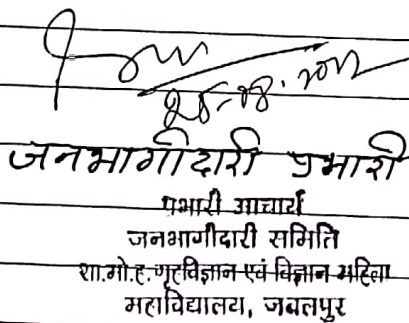 जनभागीदारी प्रभारी
प्रभारी आचार्य
जनभागीदारी समिति
शा.मो.ह. गृहविज्ञान एवं विज्ञान महिला
महाविद्यालय, जबलपुर